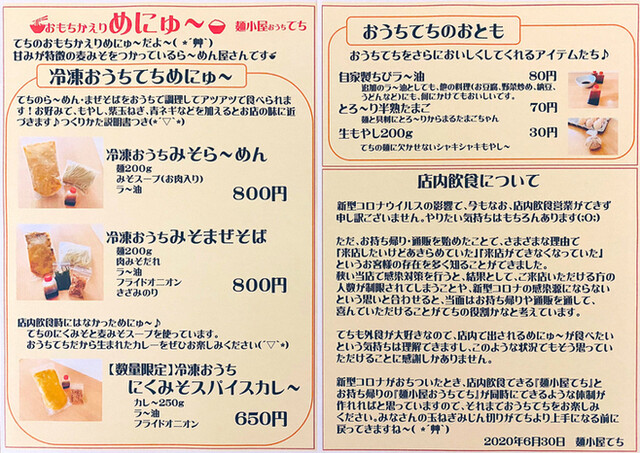 おもちかえりめにゅ～ 麺小屋おうちてち
てちのおもちかえりめにゅ～だよ～( *´艸`)
甘みが特徴の麦みそをつかっているら～めん屋さんです
冷凍おうちてちめにゅ～
てちのら～めん・まぜそばをおうちで調理してアツアツで食べられま
す！お好みで、もやし、紫玉ねぎ、青ネギなどを加えるとお店の味に近
づきます♪つくりかた説明書つき(*'▽'*)
冷凍おうちみそら～めん
麺200g
みそスープ(お肉入り)
ラ～油
800円
冷凍おうちみそまぜそば
麺200g
肉みそだれ
ラ～油
フライドオニオン
きざみのり
800円
店内飲食時にはなかっためにゅ～♪
てちのにくみそと麦みそスープを使っています。
おうちてちだから生まれたカレーをぜひお楽しみください(*'▽'*)
【数量限定】冷凍おうち
にくみそスパイスカレ～
カレ～250g
ラ～油
フライドオニオン
650円
おうちてちのおとも
おうちてちをさらにおいしくしてくれるアイテムたち♪
自家製ちびラ～油 80円
追加のラ～油としても、他の料理(お豆腐、野菜炒め、納豆、
うどんなど)にも、何にかけてもおいしいです。
とろ～り半熟たまご 70円
麺と具材にとろ～りからまるたまごちゃん
生もやし200g 30円
てちの麺に欠かせないシャキシャキもやし～
店内飲食について
新型コロナウイルスの影響で、今もなお、店内飲食営業ができず
申し訳ございません。やりたい気持ちはもちろんあります(;O;)
ただ、お持ち帰り・通販を始めたことで、さまざまな理由で
『来店したいけどあきらめていた』『来店ができなくなっていた』
というお客様の存在を多く知ることができました。
狭い当店で感染対策を行うと、結果として、ご来店いただける方の
人数が制限されてしまうことや、新型コロナの感染源にならない
という思いと合わせると、当面はお持ち帰りや通販を通して、
喜んでいただけることがてちの役割かなと考えています。
てちも外食が大好きなので、店内で出されるめにゅ～が食べたい
という気持ちは理解できますし、このような状況でもそう思ってい
ただけることに感謝しかありません。
新型コロナがおちついたとき、店内飲食できる『麺小屋てち』と
お持ち帰りの『麺小屋おうちてち』が同時にできるような体制が
作れればと思っていますので、それまでおうちてちをお楽しみ
ください。みなさんの玉ねぎみじん切りがてちより上手になる前に
戻ってきますね～( *´艸`)
2020年6月30日 麺小屋てち